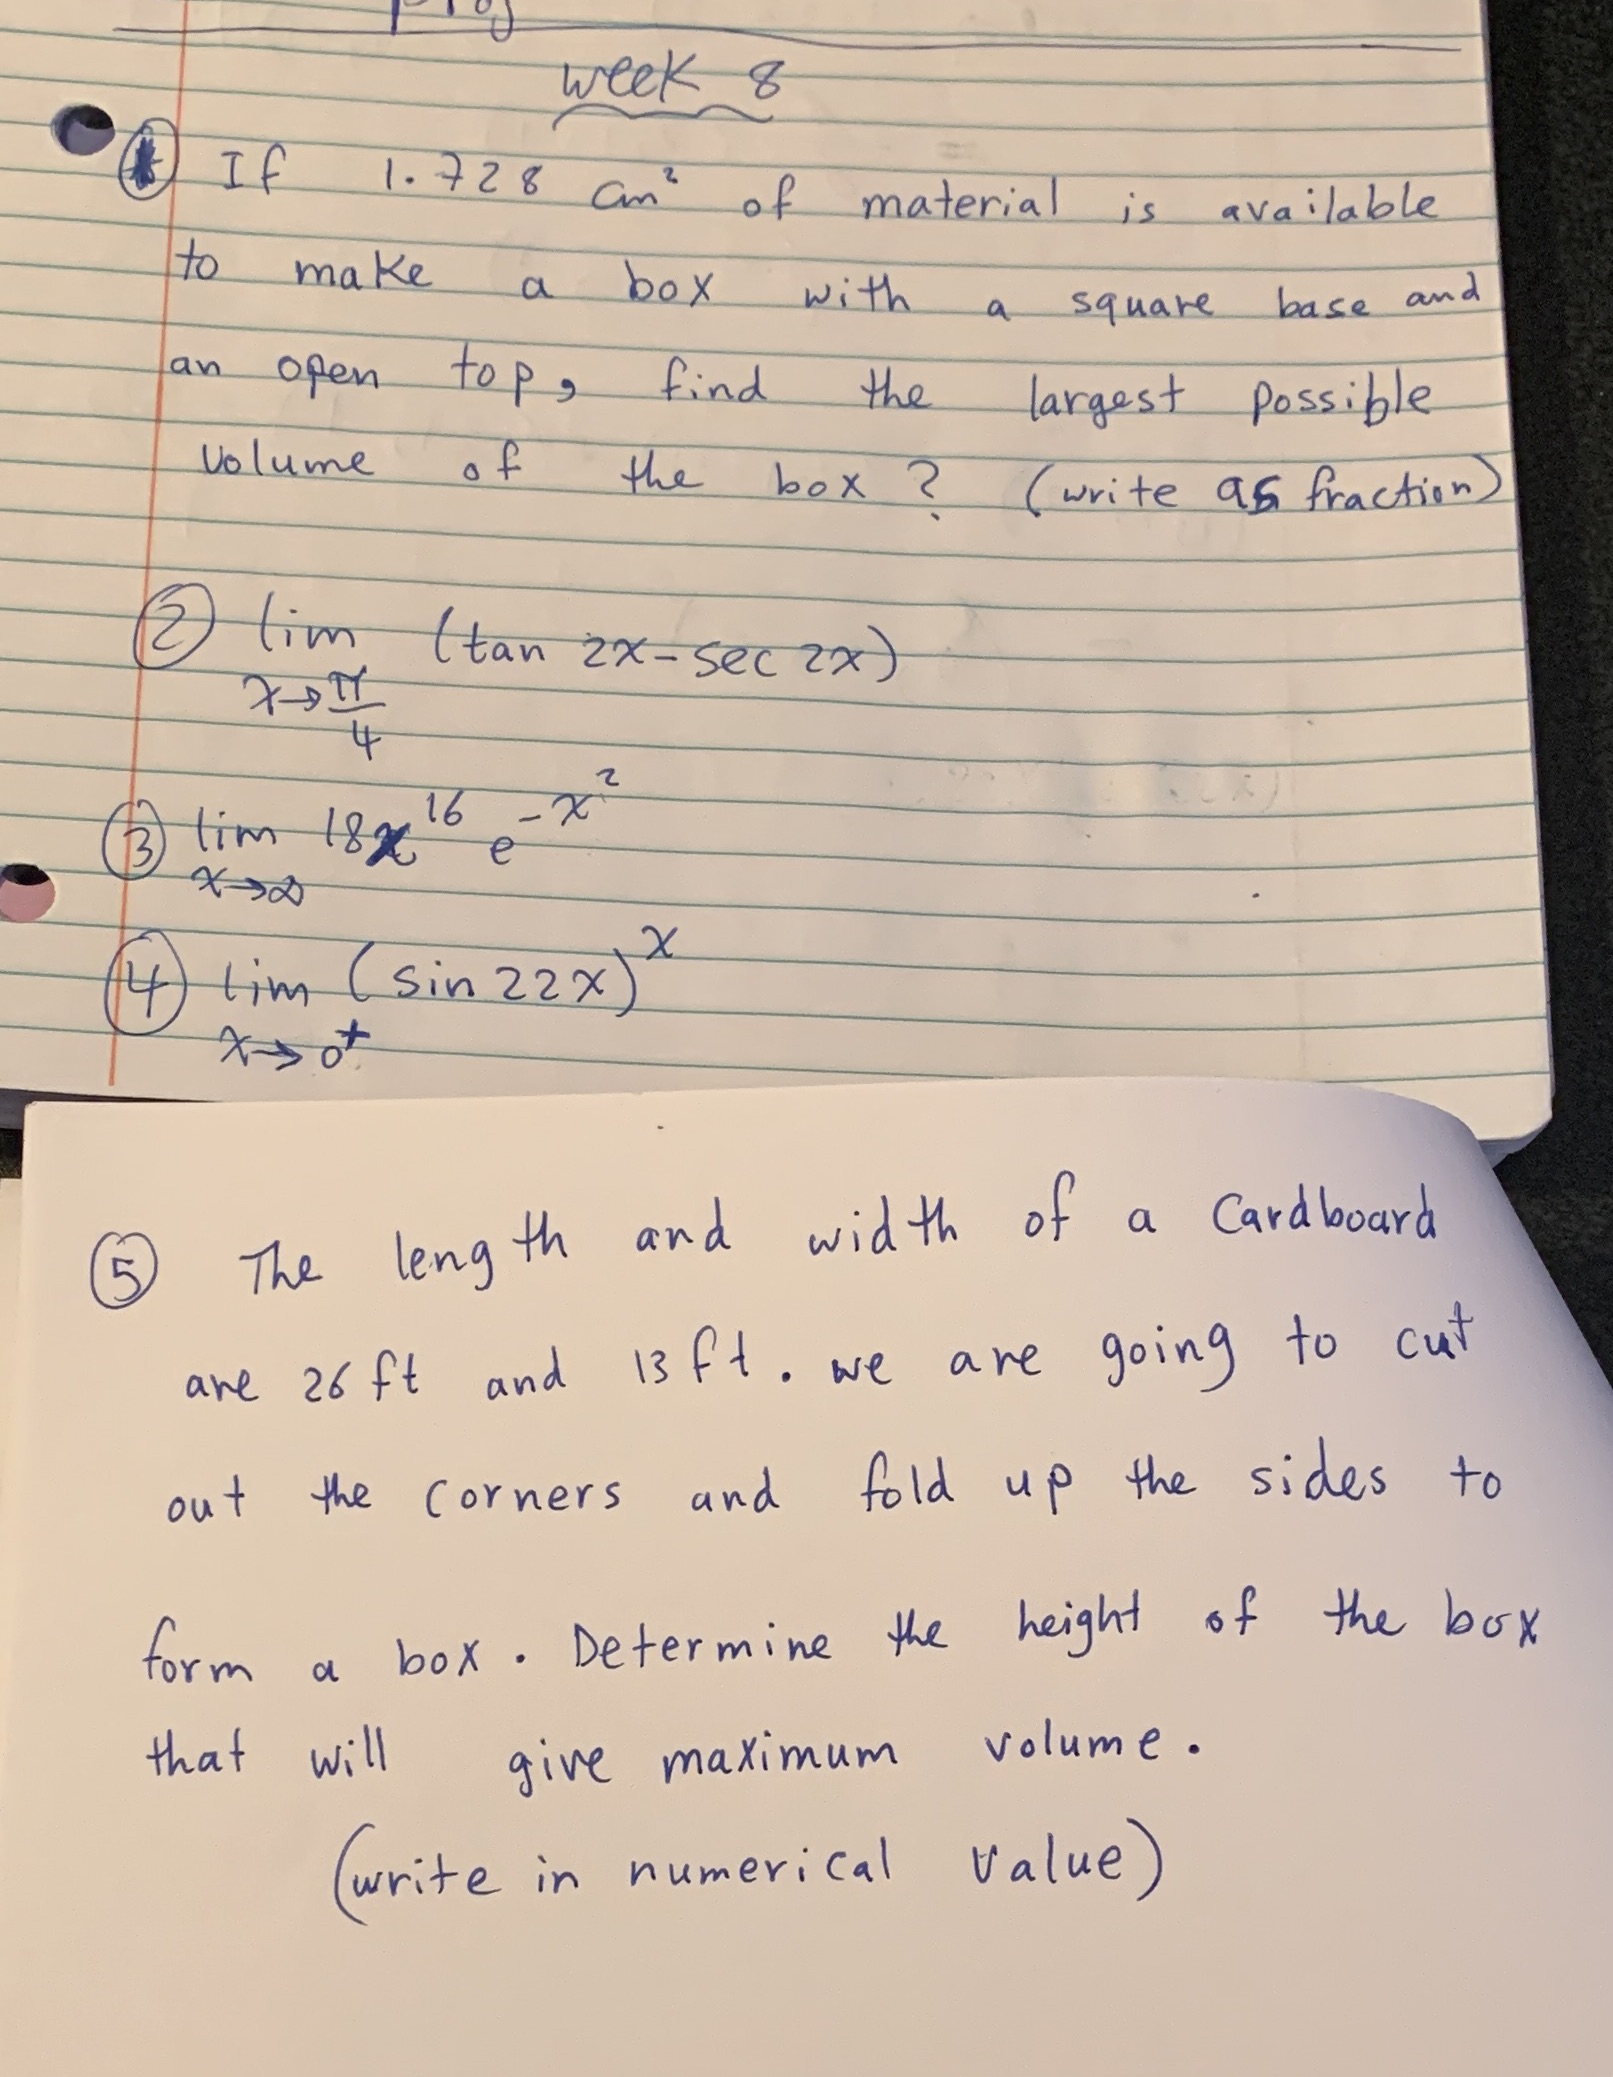 week 8
① If 1.728 cm² of material is available
to make a box with a square base and
an open top, find the largest possible
volume of the box? (write as fraction)
② lim (tan 2x-sec 2x)
x→π/4
③ lim 18x¹⁶ e^-x²
x→∞
④ lim (sin 22x)^x
x→0⁺
⑤ The length and width of a Cardboard
are 26 ft and 13 ft. we are going to cut
out the corners and fold up the sides to
form a box. Determine the height of the box
that will give maximum volume.
(write in numerical value)